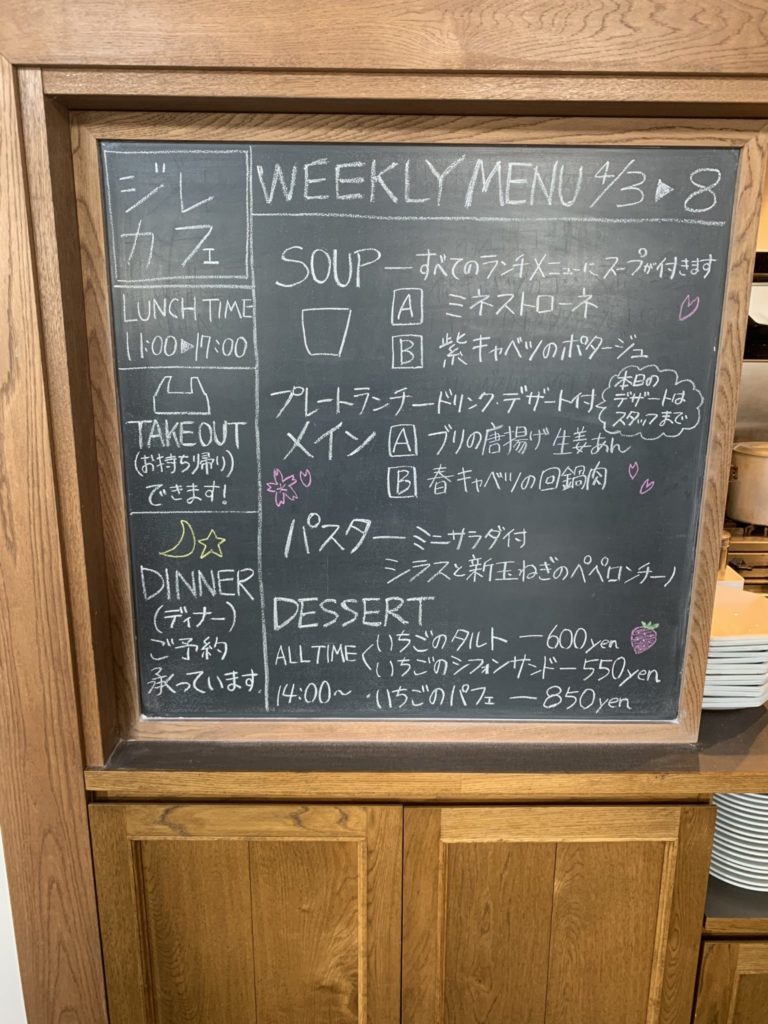 ジレ
カフェ
LUNCH TIME
11:00▶17:00
TAKEOUT
(お持ち帰り)
できます!
DINNER
(ディナー)
ご予約
承っています.
WEEKLY MENU 4/3▶8
SOUP ー すべてのランチメニューに スープが付きます
A ミネストローネ
B 紫キャベツのポタージュ
プレートランチードリンク・デザート付
本日の
デザートは
スタッフまで
メイン A ブリの唐揚げ 生姜あん
B 春キャベツの回鍋肉
パスター ミニサラダ付
シラスと新玉ねぎのペペロンチーノ
DESSERT
ALL TIME ・いちごのタルト ー 600yen
・いちごのシフォンサンドー 550yen
14:00〜 ・いちごのパフェ ー 850yen